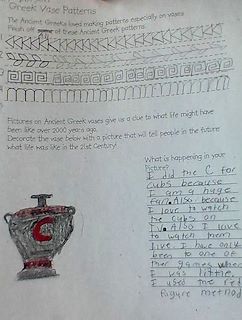 Greek Vase Patterns
The Ancient Greeks loved making patterns especially on vases
Finish off of these Ancient Greek patterns.
Pictures on Ancient Greek vases give us a clue to what life might have
been like over 2000 years ago.
Decorate the vase below with a picture that will tell people in the future
what life was like in the 21st Century!
What is happening in your
Picture?
I did the C for
cubs because
I am a huge
fan. Also because
I love to watch
the cubs on
T.V. Also I love
to watch them
live. I have only
been to one of
their games when
I was little.
I used the red
figure method
C